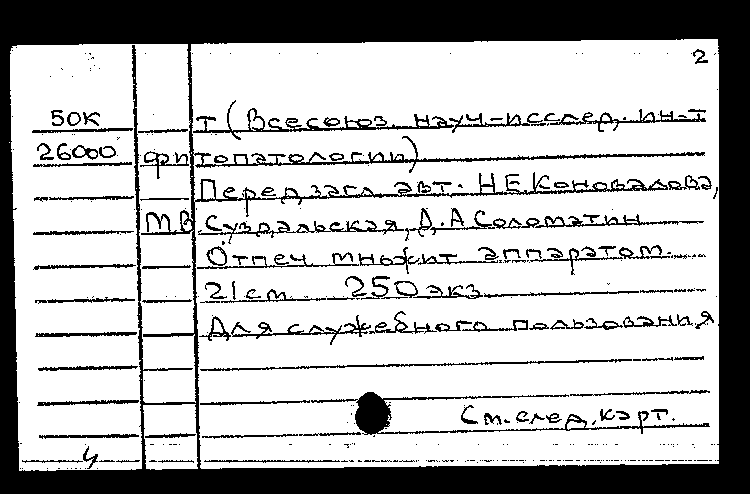 2
50К т (Всесоюз. науч-исслед. ин-т
26000 фитопатологии)
Перед загл. авт. Н Е Коновалова,
М В Суздальская, Д. А Соломатин
Отпеч множит аппаратом.
21 см 250 экз
Для служебного пользования
См. след. карт.
4